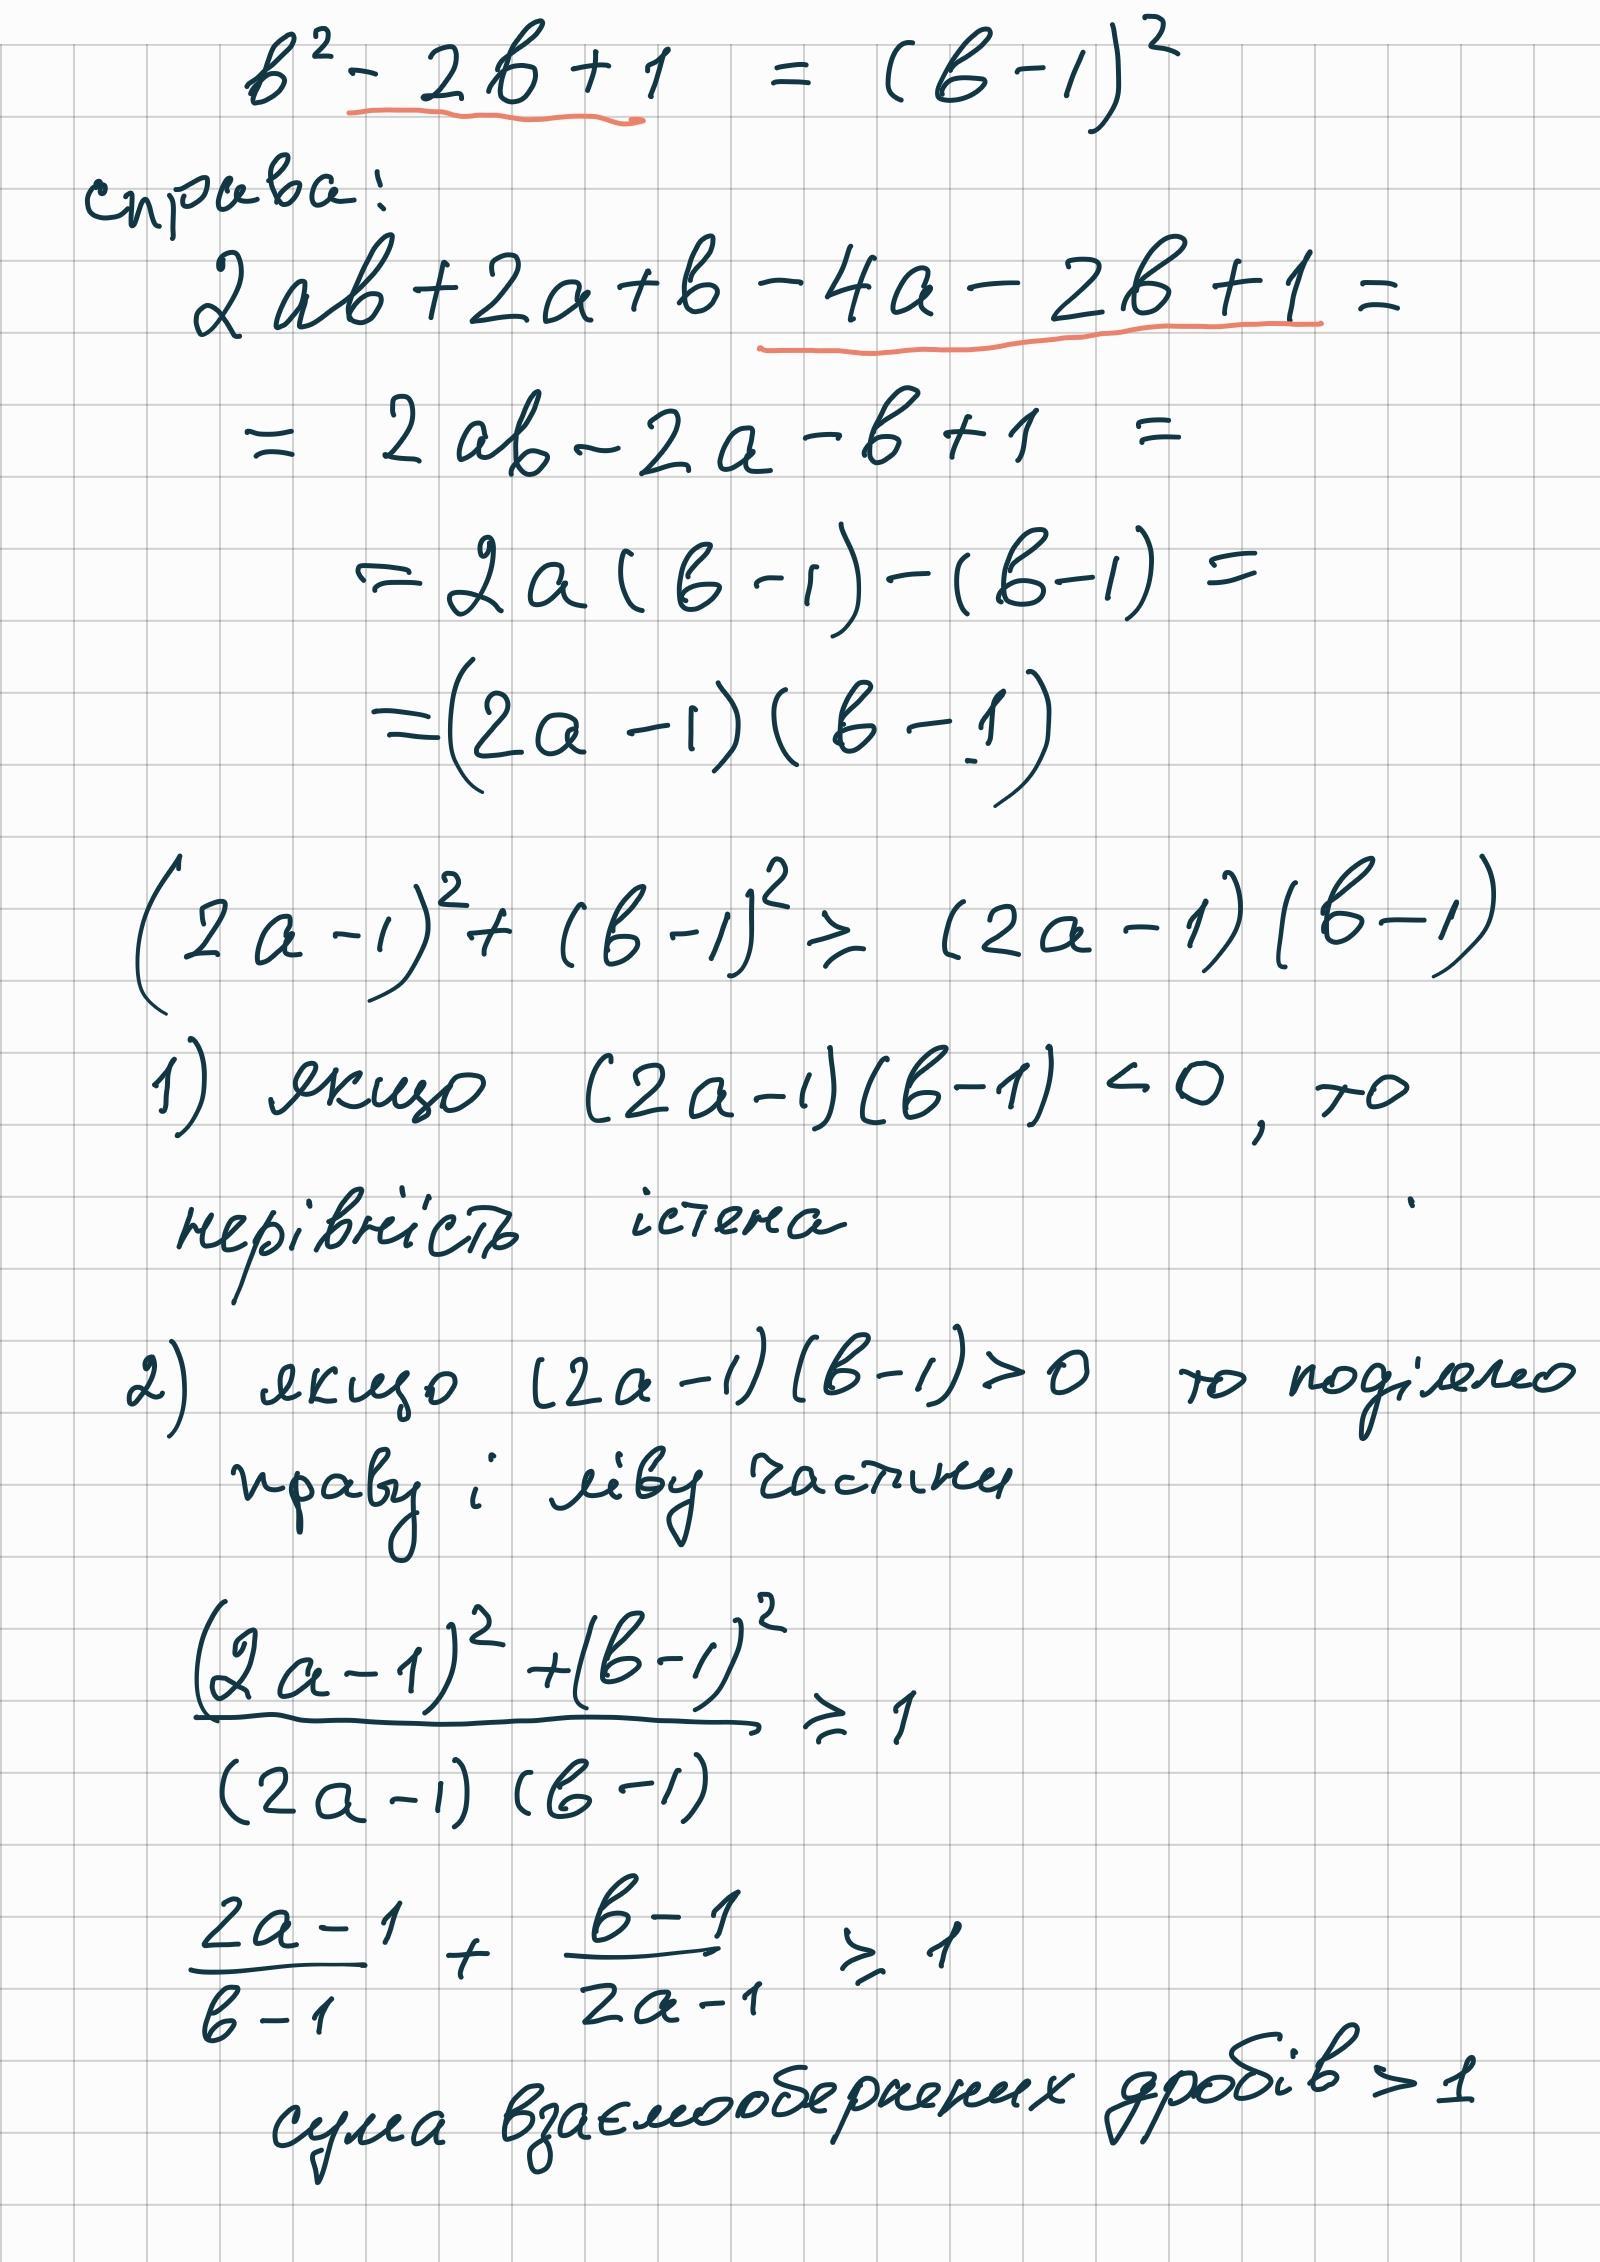 в² - 2в + 1 = (в - 1)²
справа:
2ав + 2а + в - 4а - 2в + 1 =
= 2ав - 2а - в + 1 =
= 2а(в - 1) - (в - 1) =
= (2а - 1)(в - 1)
(2а - 1)² + (в - 1)² ⩾ (2а - 1)(в - 1)
1) якщо (2а - 1)(в - 1) < 0, то
нерівність істена
2) якщо (2а - 1)(в - 1) > 0 то поділемо
праву і ліву частини
((2а - 1)² + (в - 1)²) / ((2а - 1)(в - 1)) ⩾ 1
(2а - 1)/(в - 1) + (в - 1)/(2а - 1) ⩾ 1
сума взаємообернених дробів > 1